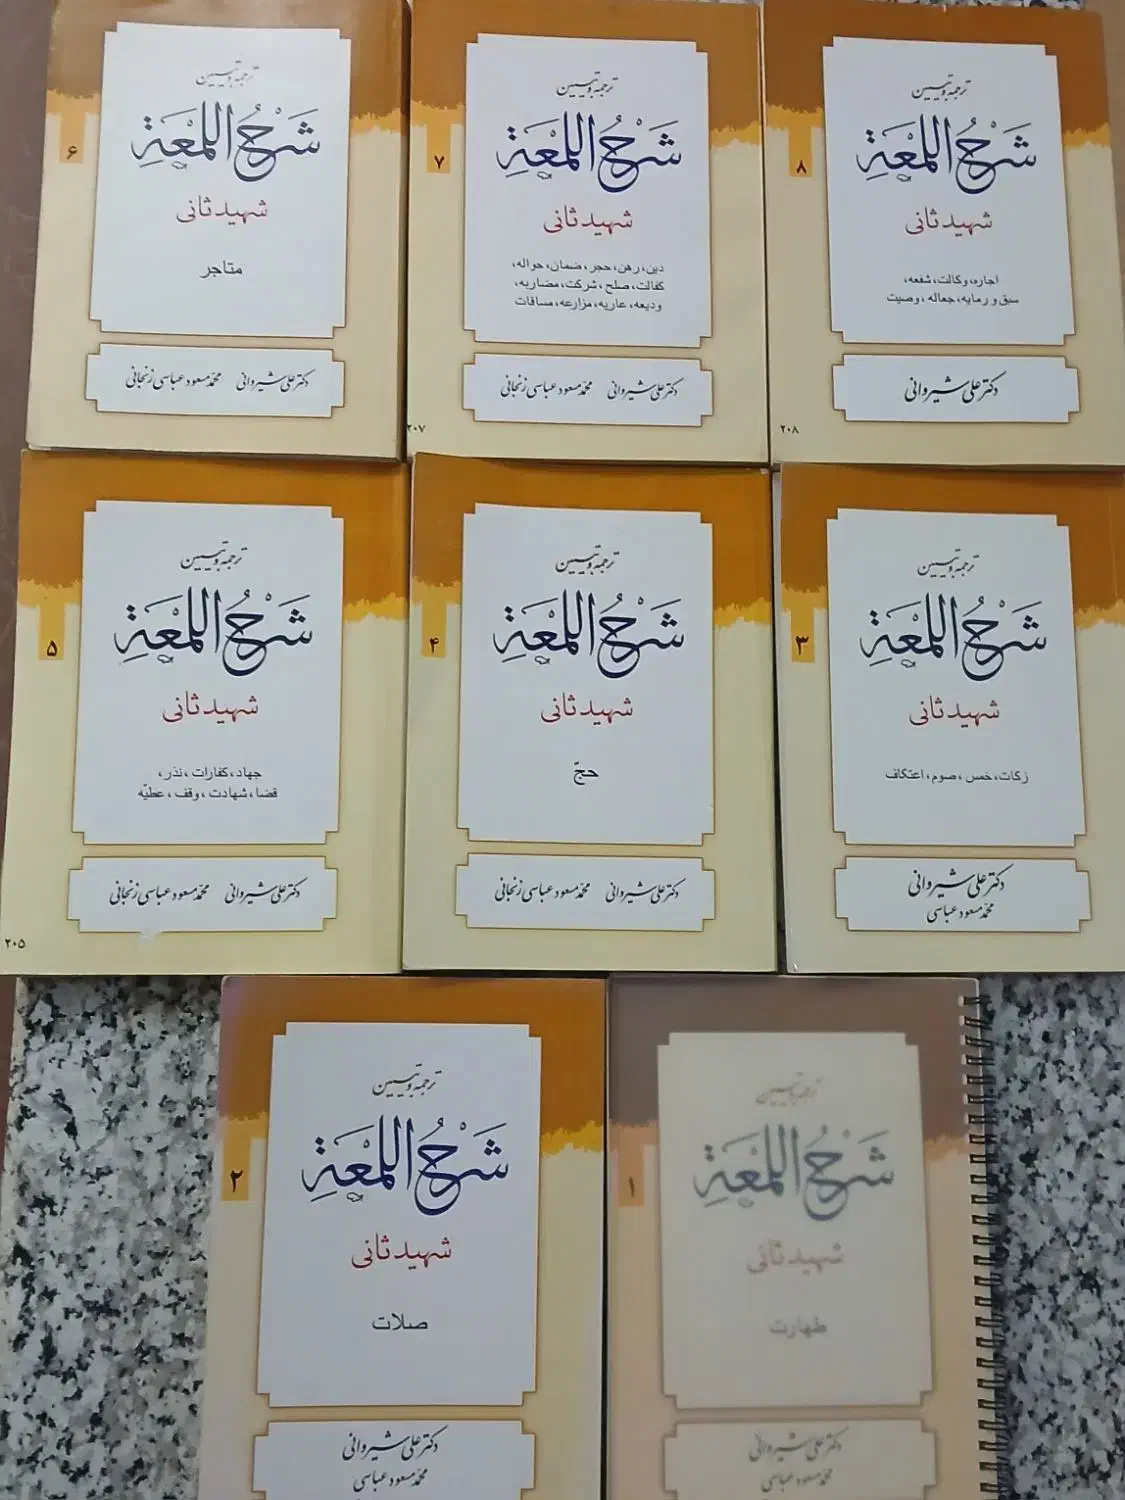 ترجمه و تبیین
شَرْحُ اللُّمْعَةِ
شهید ثانی
متاجر
دکتر علی شیروانی محمّد مسعود عباسی زنجانی
۶
ترجمه و تبیین
شَرْحُ اللُّمْعَةِ
شهید ثانی
دین، رهن، حجر، ضمان، حواله،
کفالت، صلح، شرکت، مضاربه،
ودیعه، عاریه، مزارعه، مساقات
دکتر علی شیروانی محمّد مسعود عباسی زنجانی
۷
۲۰۷
ترجمه و تبیین
شَرْحُ اللُّمْعَةِ
شهید ثانی
اجاره، وکالت، شفعه،
سبق و رمایه، جعاله، وصیت
دکتر علی شیروانی
۸
۲۰۸
ترجمه و تبیین
شَرْحُ اللُّمْعَةِ
شهید ثانی
جهاد، کفارات، نذر،
قضا، شهادت، وقف، عطیّه
دکتر علی شیروانی محمّد مسعود عباسی زنجانی
۵
۲۰۵
ترجمه و تبیین
شَرْحُ اللُّمْعَةِ
شهید ثانی
حجّ
دکتر علی شیروانی محمّد مسعود عباسی زنجانی
۴
ترجمه و تبیین
شَرْحُ اللُّمْعَةِ
شهید ثانی
زکات، خمس، صوم، اعتکاف
دکتر علی شیروانی
محمّد مسعود عباسی
۳
ترجمه و تبیین
شَرْحُ اللُّمْعَةِ
شهید ثانی
صلات
دکتر علی شیروانی
محمّد مسعود عباسی
۲
ترجمه و تبیین
شَرْحُ اللُّمْعَةِ
شهید ثانی
طهارت
دکتر علی شیروانی
محمّد مسعود عباسی
۱